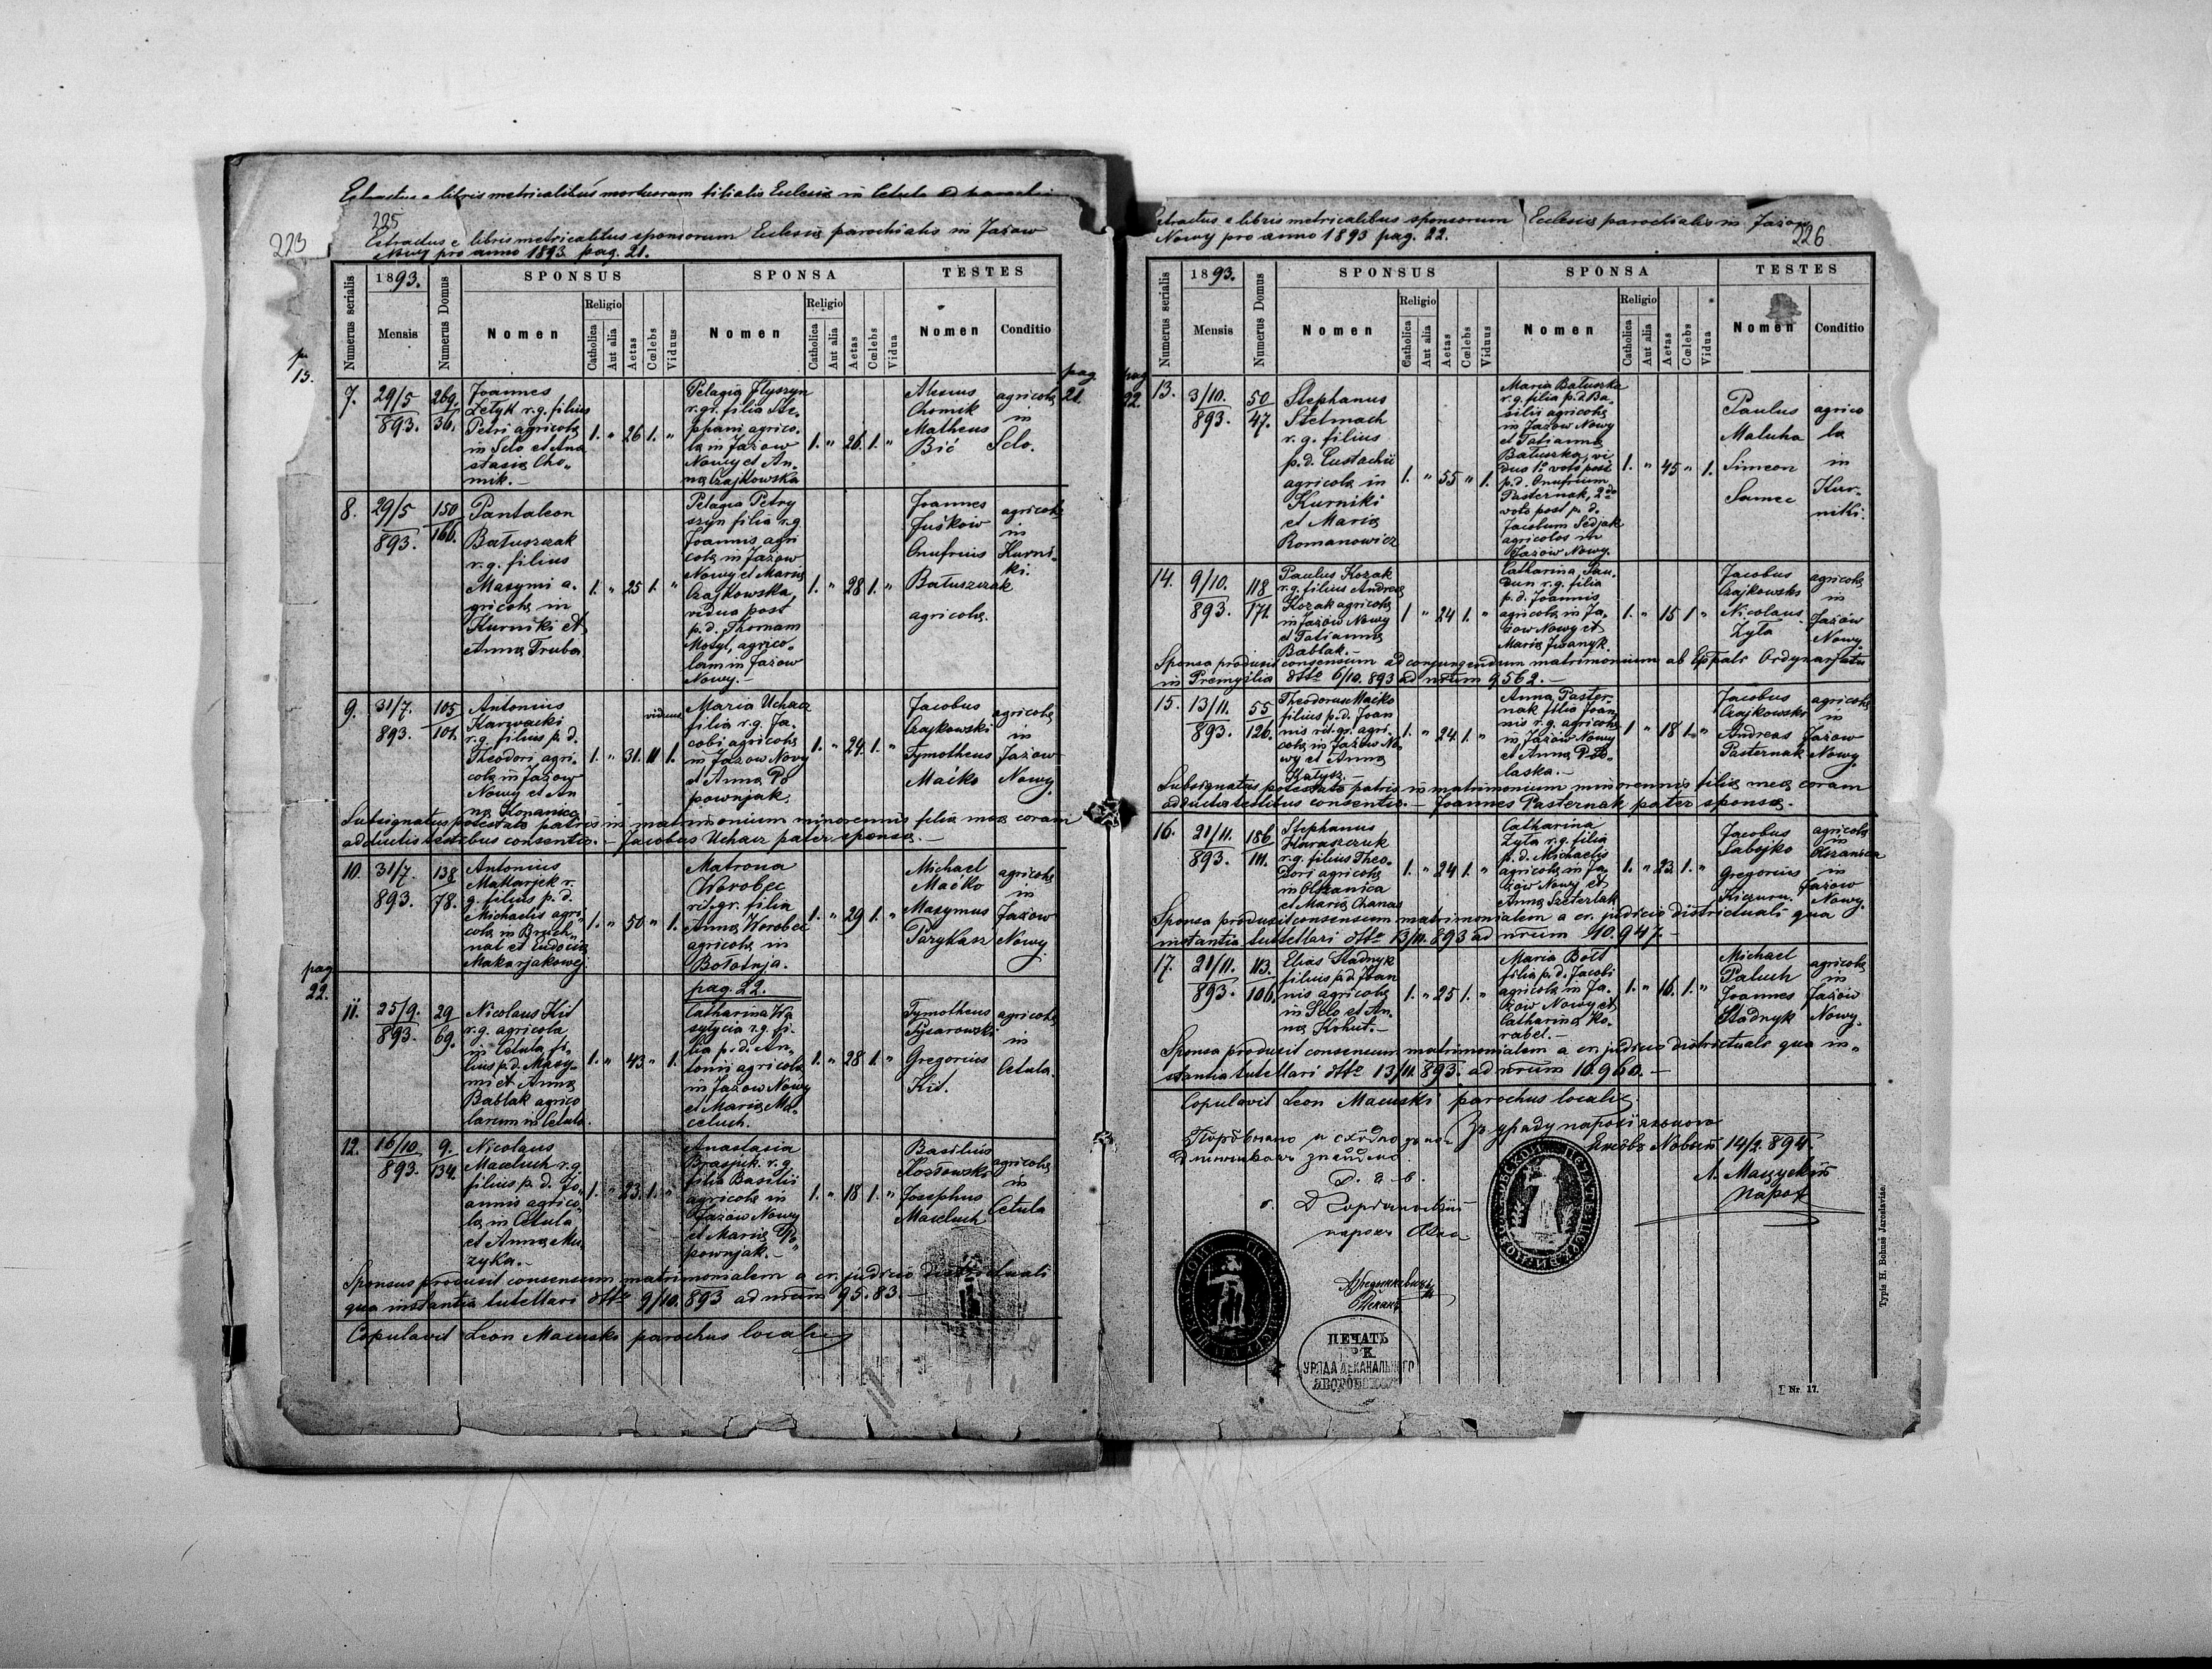 Extractus e libris metricalibus mortuorum filialis Ecclesiæ in Cetula ad
225
223
Extractus e libris metricalibus sponsorum Ecclesiæ parochialis in Jażow
Nowy pro anno 1893 pag. 21.
Numerus serialis
1893.
Mensis
Numerus Domus
SPONSUS
Nomen
Religio
Catholica
Aut alia
Aetas
Cœlebs
Viduus
SPONSA
Nomen
Religio
Catholica
Aut alia
Aetas
Cœlebs
Vidua
TESTES
Nomen
Conditio
15.
pag.
21.
7.
29/5
893.
269.
36.
Joannes
Petri agricolæ
in Sclo et Ana
stasiæ Cho„
mik.–
1. „ 26 1. „
Pelagia
r.gr. filia Ste„
phani agrico„
læ in Jażow
Nowy et An„
næ Czajkowska
1. „ 26. 1. „
Alexius
Chomik
Matheus
Bić
agricolæ
in
Sclo.
8.
29/5
893.
150
166.
Pantaleon
Batuszczak
r.g. filius
Maxymi a„
gricolæ in
Kurniki et
Annæ Truba
1. „ 25 1. „
Pelagia Petry
szyn filia r.g.
Joannis agri
colæ in Jażow
Nowy et Mariæ
Czajkowska,
vidua post
p.d. Thomam
Motyl, agrico„
lam in Jażow
Nowy.–
1. „ 28 1. „
Joannes
Juśkow
Onufrius
Batuszczak
agricolæ.
agricolæ
in
Kurni„
ki.
9.
31/7.
893.
105
101.
Antonius
Karwacki
r.g. filius p.d.
Theodori agri„
colæ in Jażow
Nowy et An
næ Konanica
viduus
1. „ 31. 11 1.
Maria Uchacz
filia r.g. Ja„
cobi agricolæ
in Jażow Nowy
et Annæ Po
pownjak.
1. „ 24. 1. „
Jacobus
Czajkowski
Tymotheus
Maćko
agricolæ
in
Jażow
Nowy.
Subsignatus potestate patris in matrimonium minorennis filiæ meæ coram
adductis testibus consentio.– Jacobus Uchacz pater sponsæ.–
10.
31/7.
893.
138
78.
Antonius
Makarjek r.
g. filius p.d.
Michaelis agri„
colæ in Bruch„
nal et Eudociæ
Makarjakowej
1. „ 50 „ 1.
Matrona
Worobec
rit.gr. filia
Annæ Worobec
agricolæ in
Bołotnja.
1. „ 29 1. „
Michael
Maćko
Maxymus
Parykasz
agricolæ
in
Jażow
Nowy.
pag.
22.
pag. 22.
11.
25/9.
893.
29
69.
Nicolaus Kit
r.g. agricola
in Cetula fi„
lius p.d. Maxy„
mi et Annæ
Bablak agrico
larum in Cetula.
1. „ 43 „ 1.
Catharina Wa
sylycia r.g. fi„
lia p.d. An„
tonii agricolæ
in Jażow Nowy
et Mariæ Ma„
celuch.
1. „ 28 1. „
Tymotheus
Pysarowski
Gregorius
Kit.
agricolæ
in
Cetula.
12.
16/10
893.
9.
134.
Nicolaus
Maceluch r.g.
filius p.d. Jo„
annis agrico„
læ in Cetula
et Annæ Mu„
zyka.–
1. „ 23. 1. „
Anastasia
Brasjuk. r.g.
filia Basilii
agricolæ in
Jażow Nowy
et Mariæ Po„
pownjak.–
1. „ 18 1. „
Basilius
Kozłowski
Josephus
Maceluch
agricolæ
in
Cetula
Sponsus produxit consensum matrimonialem a cr. judicio districtuali
qua instantia tutellari dtto 9/10. 893 ad nrum 95.83.–
Copulavit Leon Macuski parochus localis
Extractus e libris metricalibus sponsorum Ecclesiæ parochialis in Jażow
Nowy pro anno 1893 pag. 22.
226
Numerus serialis
1893.
Mensis
Numerus Domus
SPONSUS
Nomen
Religio
Catholica
Aut alia
Aetas
Cœlebs
Viduus
SPONSA
Nomen
Religio
Catholica
Aut alia
Aetas
Cœlebs
Vidua
TESTES
Nomen
Conditio
pag
22.
13.
3/10.
893.
50
47.
Stephanus
Stelmach
r.g. filius
p.d. Eustachii
agricolæ in
Kurniki
et Mariæ
Romanowicz
1. „ 55 „ 1.
Maria Batuszka
r.g. filia p.d. Ba„
silii agricolæ
in Jażow Nowy
et Tatiannæ
Batuszka, vi
dua 1o voto post
p.d. Onufrium
Pasternak, 2do
voto post p.d.
Jacobum Sedjak
agricolas in
Jażow Nowy.
1. „ 45 „ 1.
Paulus
Matuha
Simeon
Samec
agrico
læ
in
Kur„
niki.
14.
9/10.
893.
118
171.
Paulus Kozak
r.g. filius Andreæ
Kozak agricolæ
in Jażow Nowy
et Tatiannæ
Bablak.–
1 „ 24 1. „
Catharina
r.g. filia
p.d. Joannis
agricolæ in Ja„
żow Nowy et
Mariæ Iwanyk.
1. „ 15 1 „
Jacobus
Czajkowski
Nicolaus
Zyła
agricolæ
in
Jażow
Nowy.
Sponsa produxit consensum ad conjungendum matrimonium ab Eppali Ordynariatu
in Premyslia dtto 6/10. 893 ad nrum 9562.–
15.
13/11.
893.
55
126.
Theodorus Maćko
filius p.d. Joan
nis rit.gr. agri„
colæ in Jażow No„
wy et Annæ
Kałysz.–
1. „ 24 1. „
Anna Paster„
nak filia Joan„
nis r.g. agricolæ
in Jażow Nowy
et Annæ Pod„
laska.–
1 „ 18 1. „
Jacobus
Czajkowski
Andreas
Pasternak
agricolæ
in
Jażow
Nowy.
Subsignatus potestate patris in matrimonium minorennis filiæ meæ coram
adductis testibus consentio.– Joannes Pasternak pater sponsæ.–
16.
21/11.
893.
186
111.
Stephanus
Haraszczuk
r.g. filius Theo„
dori agricolæ
in Olszanica
et Mariæ Chanas
1. „ 24 1. „
Catharina
Zyła r.g. filia
p.d. Michaelis
agricolæ in Ja„
żow Nowy et
Annæ Szeterlak
1. „ 23. 1. „
Jacobus
Sabojko
Gregorius
agricolæ
in
Olszanica
in
Jażow
Nowy.
Sponsa produxit consensum matrimonialem a cr. judicio districtuali qua
instantia tuttellari dtto 13/11. 893 ad nrum 10.947.–
17.
21/11.
893.
113.
106.
Elias Stadnyk
filius p.d. Joan
nis agricolæ
in Sclo et An„
næ Kohut.–
1. „ 25 1. „
Maria Bolt
filia p.d. Jacobi
agricolæ in Ja„
żow Nowy et
Catharinæ Ko„
rabel.–
1. „ 16. 1. „
Michael
Paluch
Joannes
Stadnyk
agricolæ
in
Jażow
Nowy.
Sponsa produxit consensum matrimonialem a cr. judicio districtuali qua in„
stantia tutellari dtto 13/11. 893. ad nrum 10.960.–
Copulavit Leon Macuski parochus localis
14/2. 894.
Л. Мацускій
парох
ПЕЧАТЬ
УРЯДА ДЕКАНАЛЬНОГО
ЯВОРОВСКОГО
Typis H. Bohuss Jaroslaviæ.
Nr. 17.